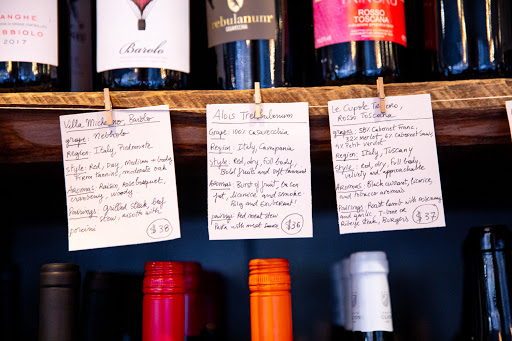 ANGHE
NEBBIOLO
2017
Barolo
Trebulanum
CASAVECCHIA
ROSSO
TOSCANA
Grape: Nebbiolo
Region: Italy, Piedmonte
Style: Red, Dry, Medium + body
Firm tannins, moderate oak
Aromas: Raisin, rose bouquet,
cranberry, woody
Pairings: Grilled steak, beef
stew, risotto with
porcini
$38
Alois Trebulanum
Grape: 100% Casavecchia
Region: Italy, Campania
Style: Red, dry, full body,
Bold fruits and soft tannins
Aromas: Burst of fruit,
licorice and smoke
Big and Exuberant
pairings: Red meat stew
Pasta with meat sauce
$36
Le Cupole Trinoro,
Rosso Toscana
grapes: 58% Cabernet Franc,
32% merlot, 6% Cabernet Sauv,
4% Petit Verdot
Region: Italy, Tuscany
Style: Red, dry, full body,
Velvety and approachable
Aromas: Black currant, licorice,
and tobacco aromas
Pairings: Roast lamb with rosemary
and garlic, T-bone or
Ribeye steak, Burgers
$37